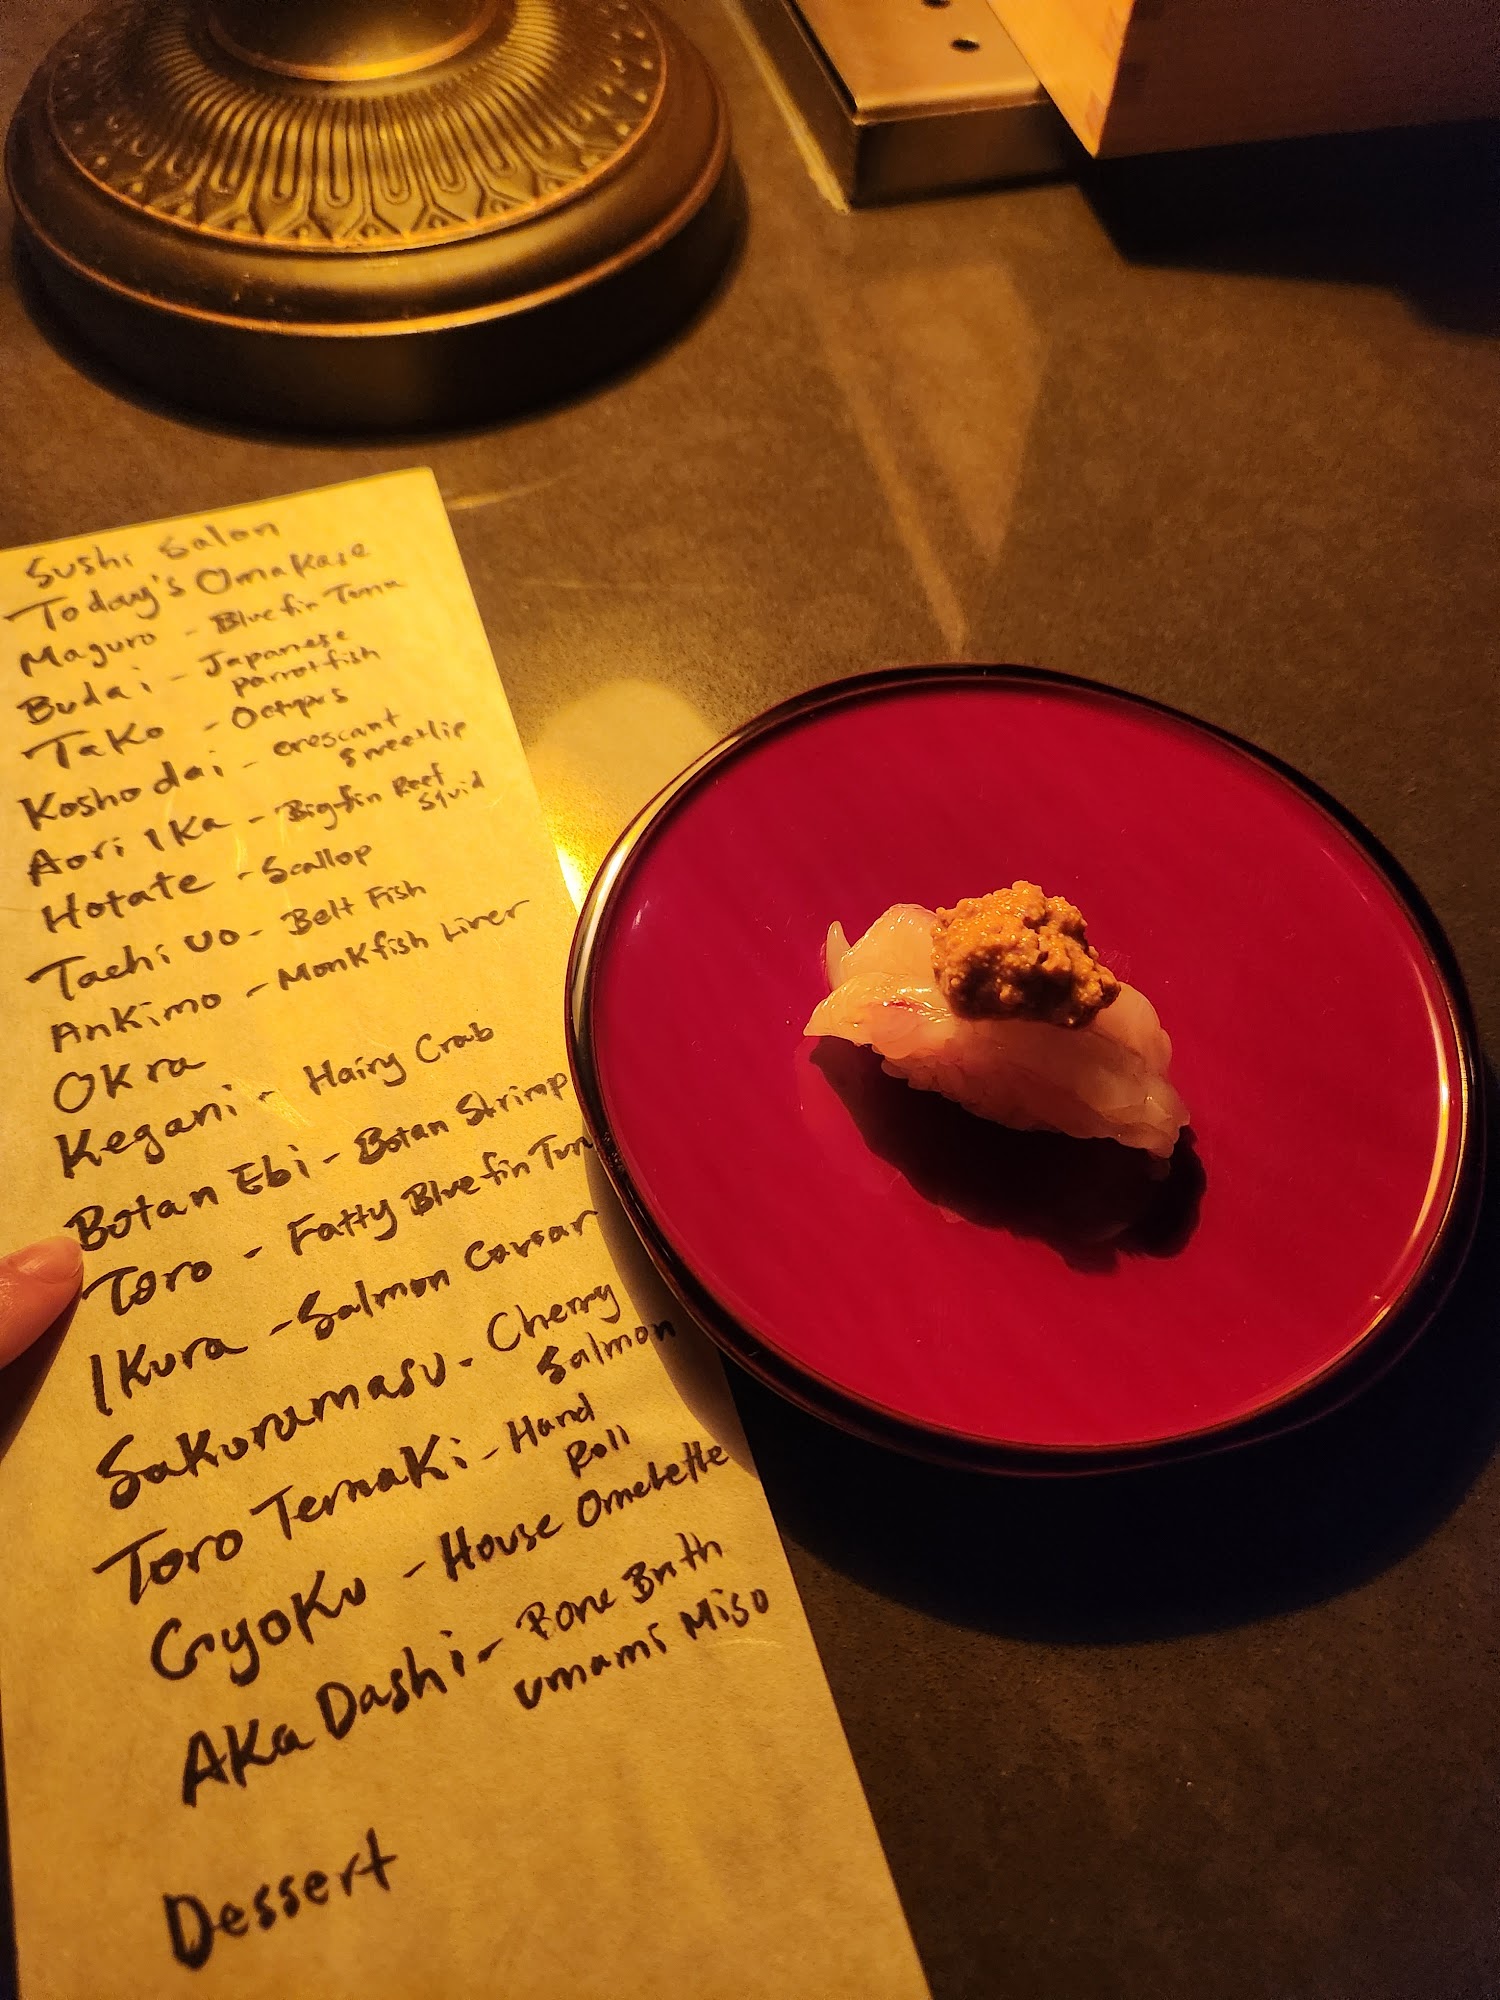 Sushi Salon
Today's Omakase
Maguro - Bluefin Tuna
Budai - Japanese
parrotfish
Tako - Octopus
Koshodai - crescant
Sweetlip
Aori Ika - Bigfin Reef
Squid
Hotate - Scallop
Tachi Uo - Belt Fish
Ankimo - Monkfish Liver
Okra
Kegani - Hairy Crab
Botan Ebi - Botan Shrimp
Toro - Fatty Bluefin Tun
Ikura - Salmon Caviar
Sakuramasu - Cherry
Salmon
Toro Temaki - Hand
Roll
Gyoku - House Omelette
Aka Dashi - Bone Broth
umami Miso
Dessert